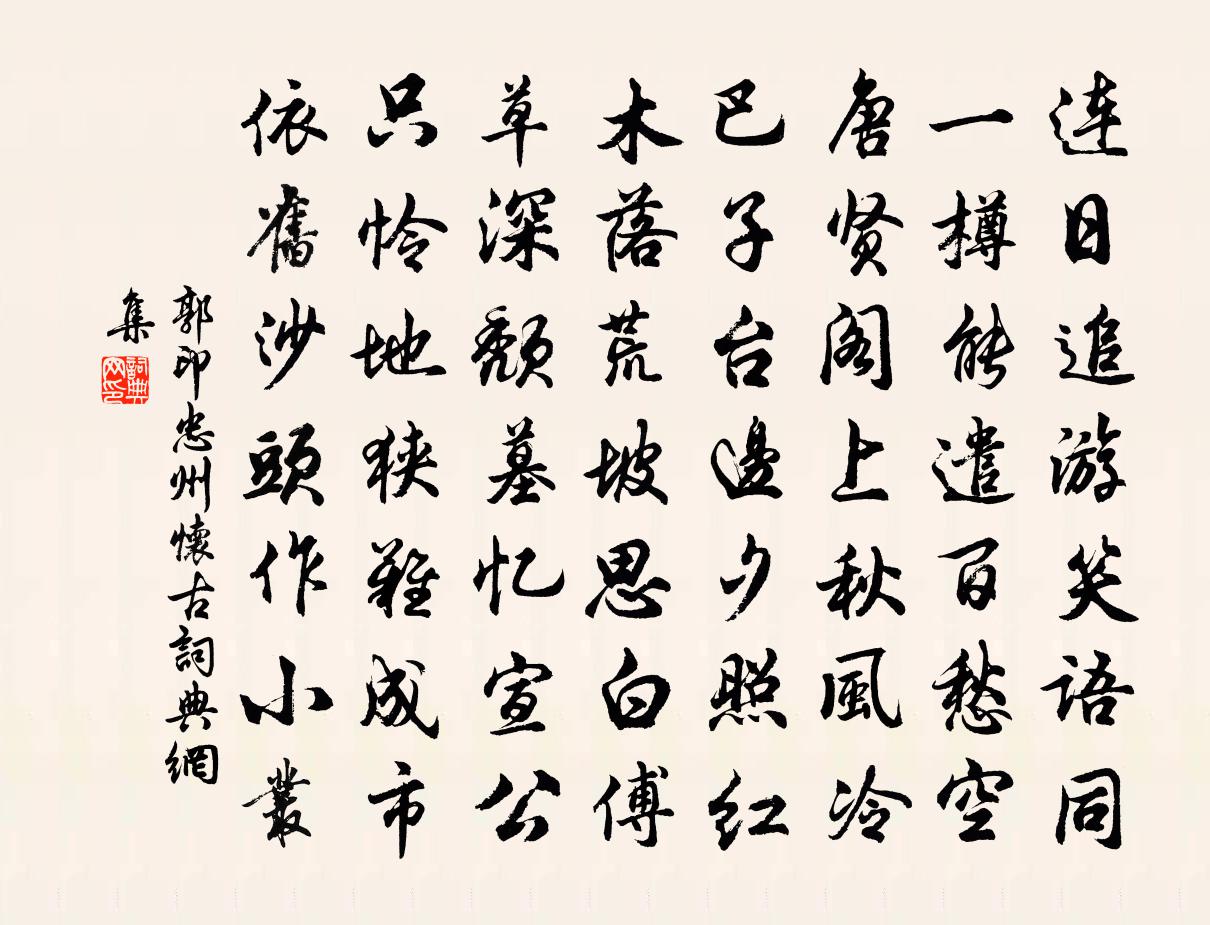 连日追游笑语同
一樽能遣百愁空
唐贤阁上秋風冷
巴子台邊夕照红
木落荒坡思白傅
草深颓墓忆宣公
只怜地狭難成市
依舊沙頭作小叢
郭印忠州懷古詞典網
集
詞典
网印